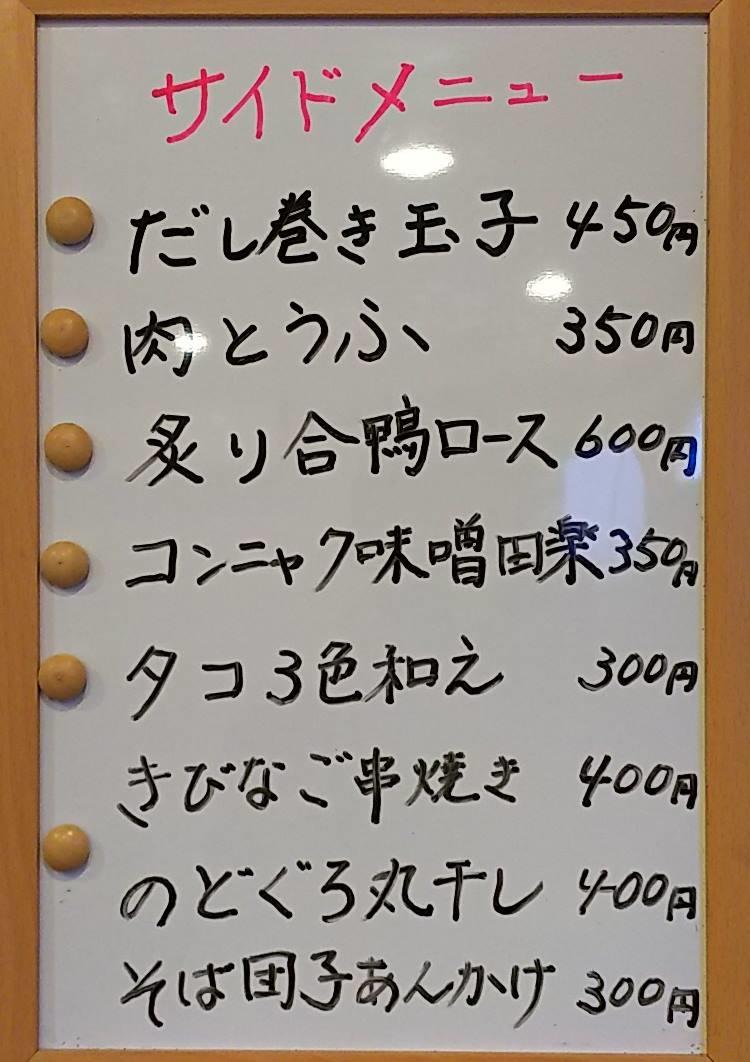 サイドメニュー
だし巻き玉子 450円
肉とうふ 350円
炙り合鴨ロース 600円
コンニャク味噌田楽 350円
タコ3色和え 300円
きびなご串焼き 400円
のどぐろ丸干し 400円
そば団子あんかけ 300円